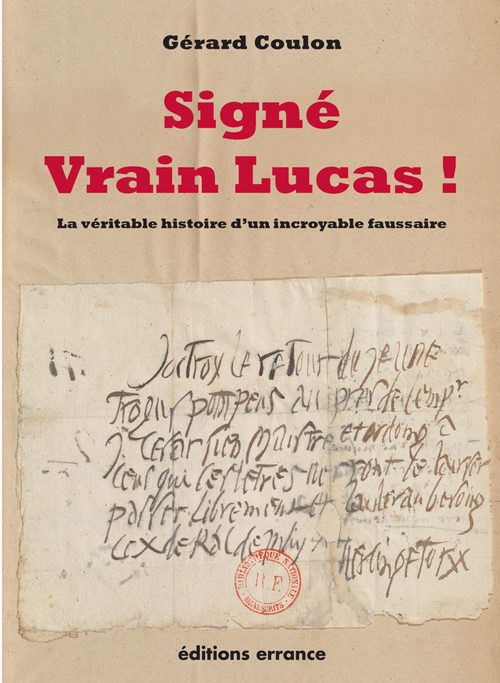 Gérard Coulon
Signé
Vrain Lucas !
La véritable histoire d'un incroyable faussaire
Joctroy le retour du jeune
Trogus pompeus au pres de lempr
J. Cesar son Maistre et
ceux qui ces letres verront de le laisser
passer librement et laider au besong
ce x de Kal de
BIBLIOTHÈQUE NATIONALE
R.F.
MANUSCRITS
éditions errance